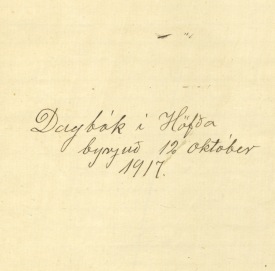 Dagbók i Höfða
byrjuð 12 október
1917.